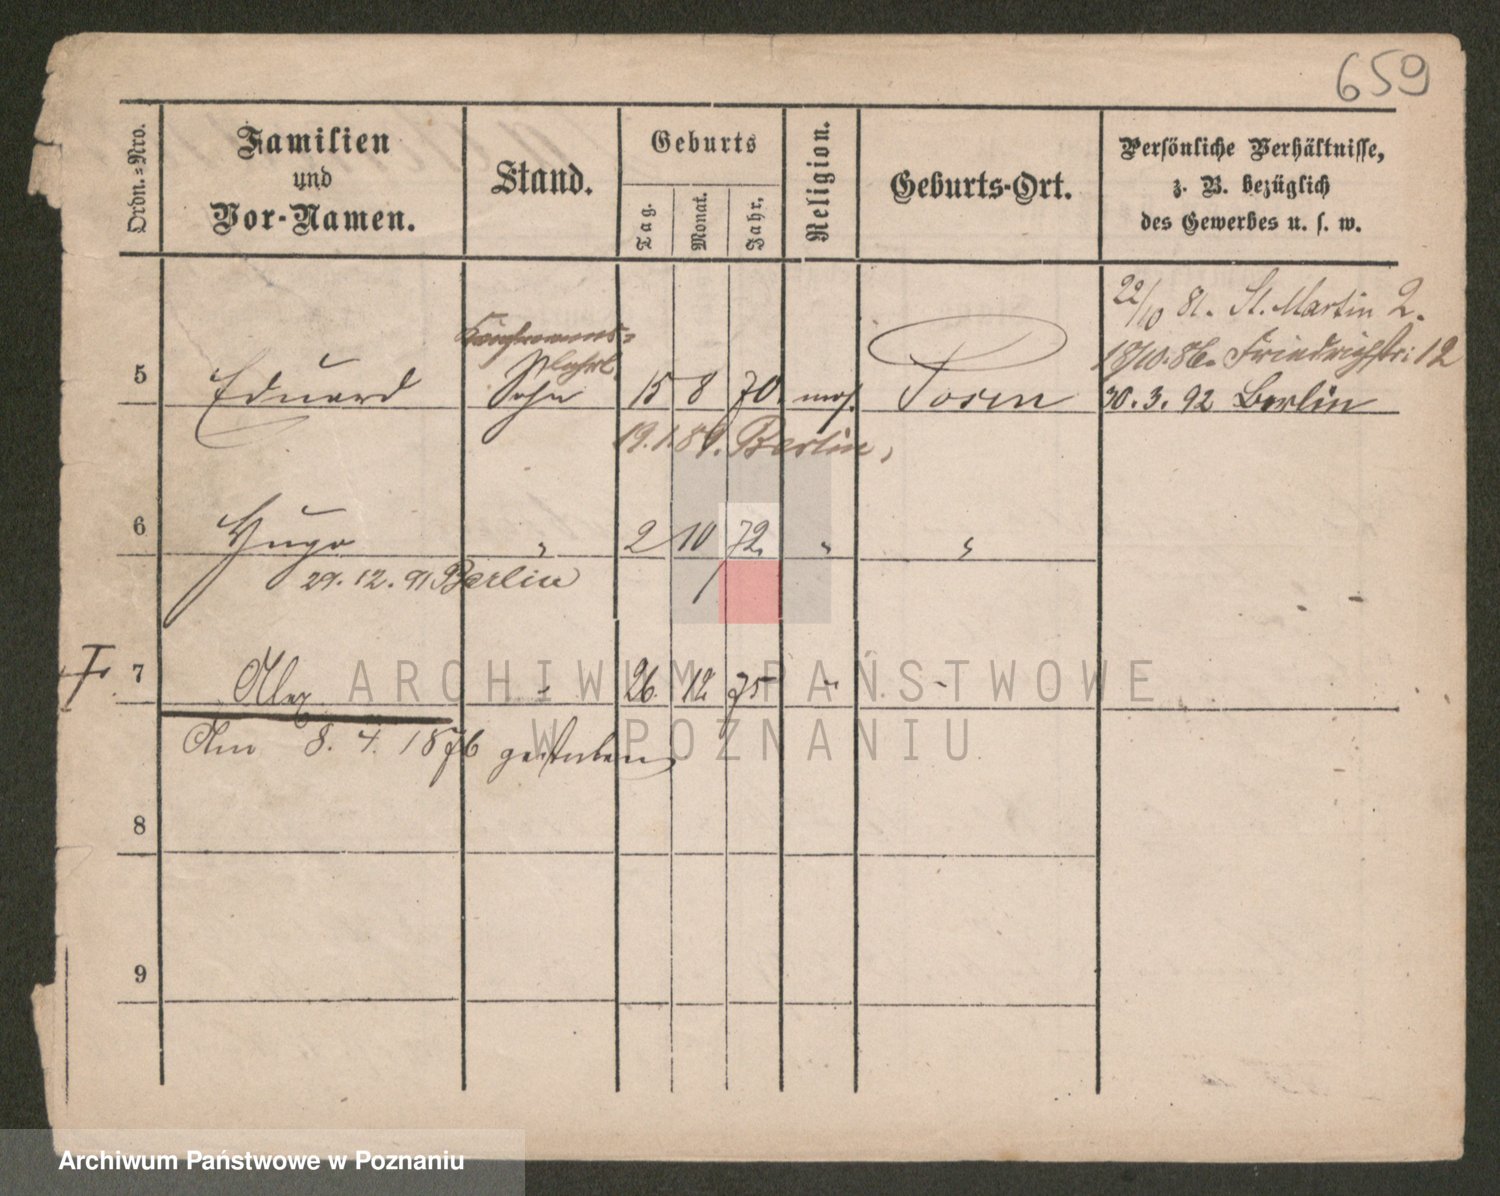 659
Ordn.-Nro.
Familien
und
Vor-Namen.
Stand.
Geburts
Tag.
Monat.
Jahr.
Religion.
Geburts-Ort.
Persönliche Verhältnisse,
z. B. bezüglich
des Gewerbes u. s. w.
22/10 81. St. Martin 2.
18/10. 86. Friedrichstr: 12
5 Eduard Sohn 15 8 70. mos. Posen 30. 3. 92 Berlin
19. 1. 89. Berlin,
6 Hugo " 2 10 72. " "
29. 12. 91 Berlin
7 Alex " 26. 12 75 " "
Am 8. 4. 1876 gestorben
8
9
ARCHIWUM PAŃSTWOWE
W POZNANIU
Archiwum Państwowe w Poznaniu